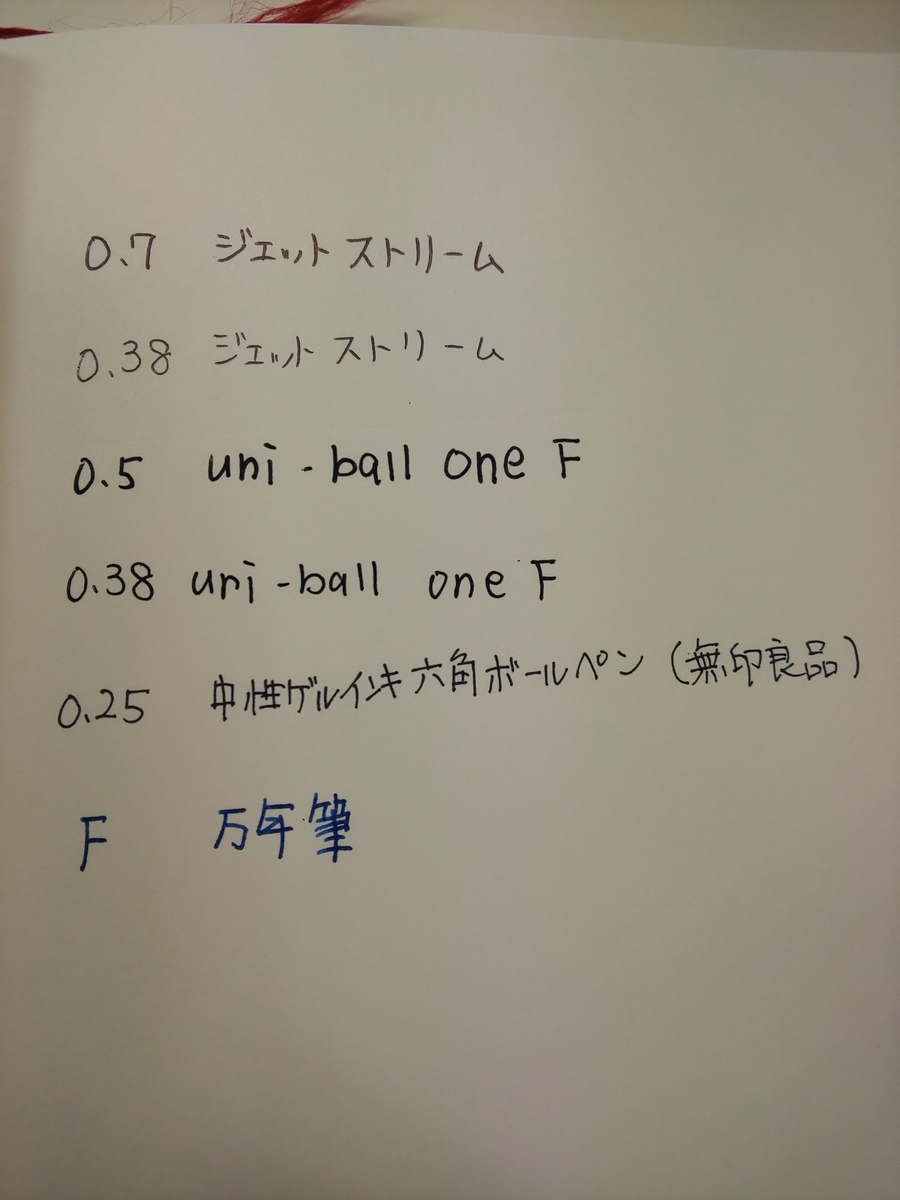 0.7 ジェットストリーム
0.38 ジェットストリーム
0.5 uni-ball one F
0.38 uni-ball one F
0.25 中性ゲルインキ六角ボールペン（無印良品）
F 万年筆